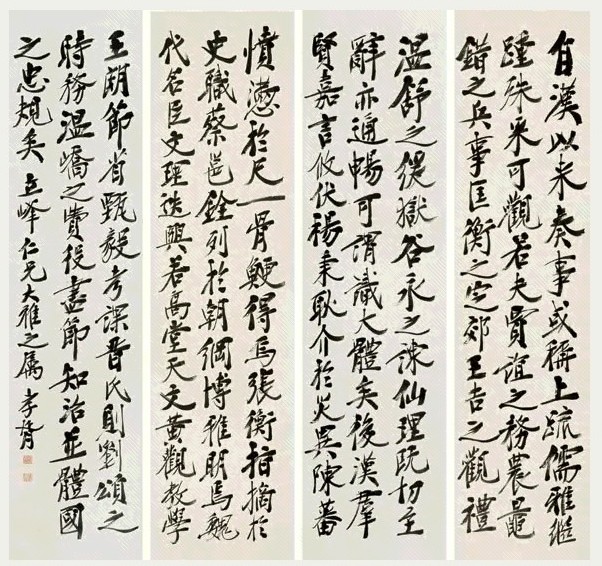 自漢以来奏事或稱上疏儒雅繼
踵殊采可觀若夫賈誼之務農鼂
錯之兵事匡衡之定郊王吉之觀禮
溫舒之緩獄谷永之諫仙理既切至
辭亦通暢可謂識大體矣後漢羣
賢嘉言攸伏楊秉耿介於災異陳蕃
憤懣於尺一骨鯁得焉張衡指摘於
史職蔡邕銓列於朝綱博雅明焉魏
代名臣文理迭興若高堂天文黃觀教學
王朗節省甄毅考課晉氏則劉頌之
時務溫嶠之費役盡節知治並體國
之忠規矣 立峰仁兄大雅之属 孝胥